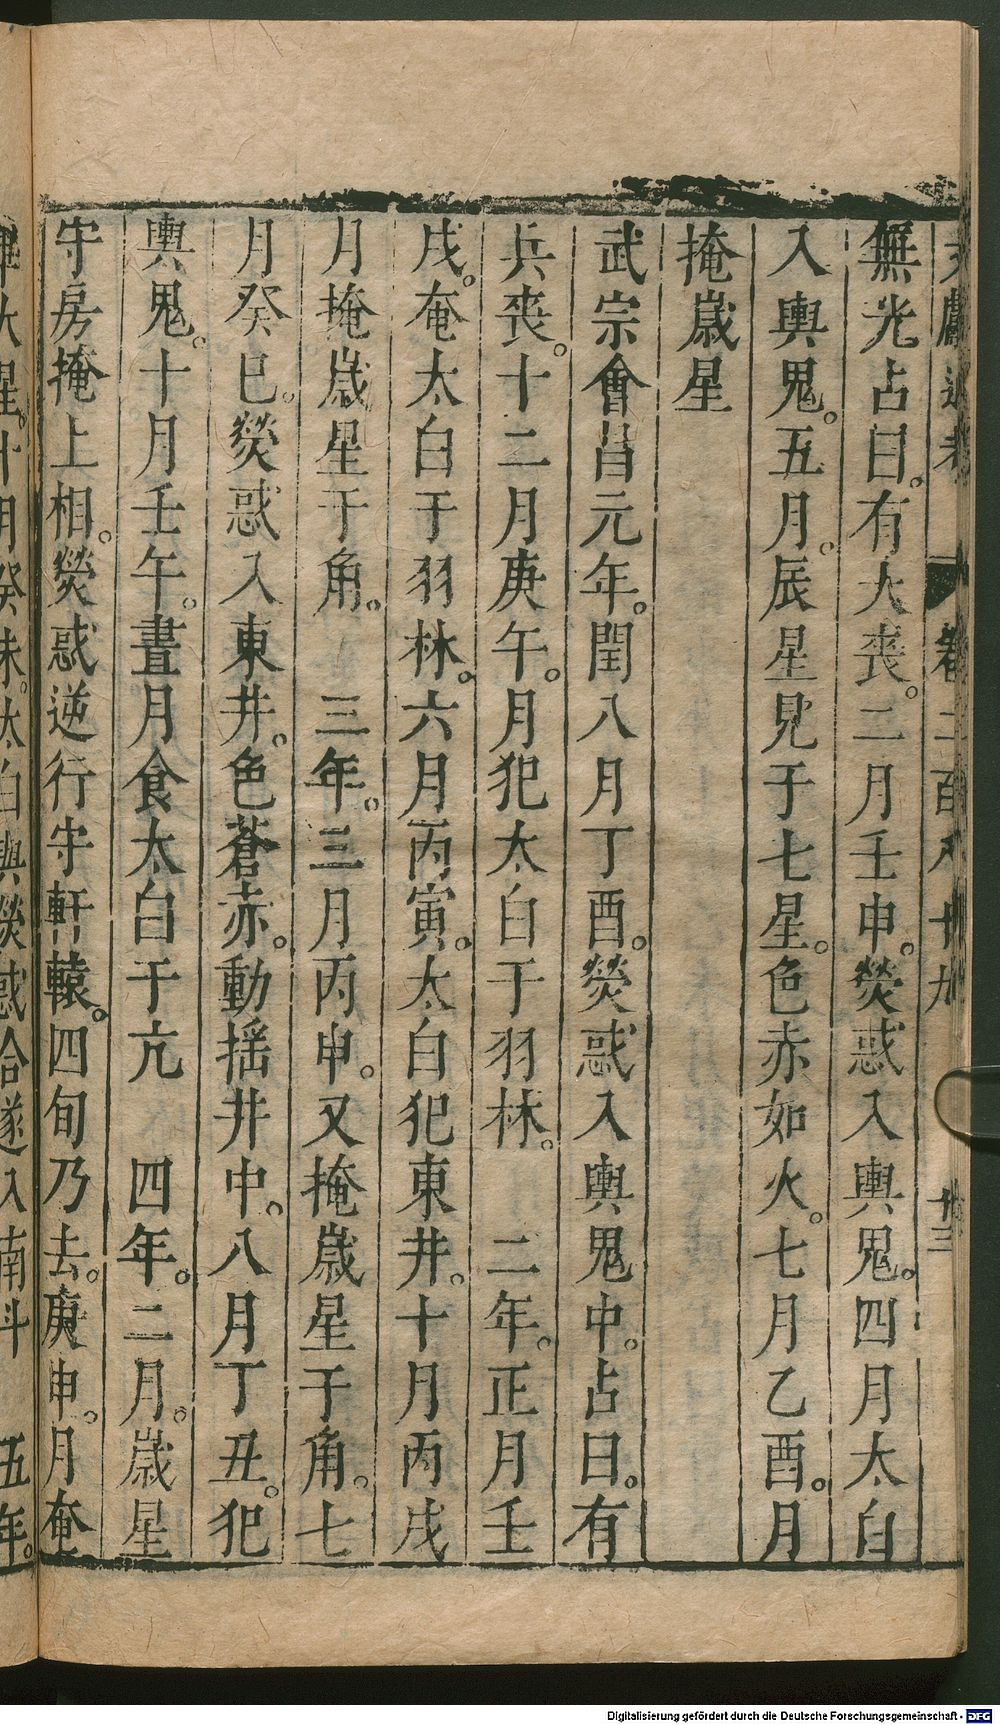 文獻通考 卷二百八十九 廿三
無光占曰有大喪。二月壬申。熒惑入輿鬼。四月太白
入輿鬼。五月。辰星見于七星。色赤如火。七月乙酉。月
掩歲星
武宗會昌元年。閏八月丁酉。熒惑入輿鬼中。占曰。有
兵喪。十二月庚午。月犯太白于羽林。 二年。正月壬
戌。奄太白于羽林。六月丙寅。太白犯東井。十月丙戌
月掩歲星于角。 三年。三月丙申。又掩歲星于角。七
月癸巳。熒惑入東井。色蒼赤。動揺井中。八月丁丑。犯
輿鬼。十月壬午。晝月食太白于亢 四年。二月。歲星
守房掩上相。熒惑逆行守軒轅。四旬乃去。庚申。月奄
畢大星。十月癸未。太白與熒惑合遂入南斗 五年。
Digitalisierung gefördert durch die Deutsche Forschungsgemeinschaft - DFG